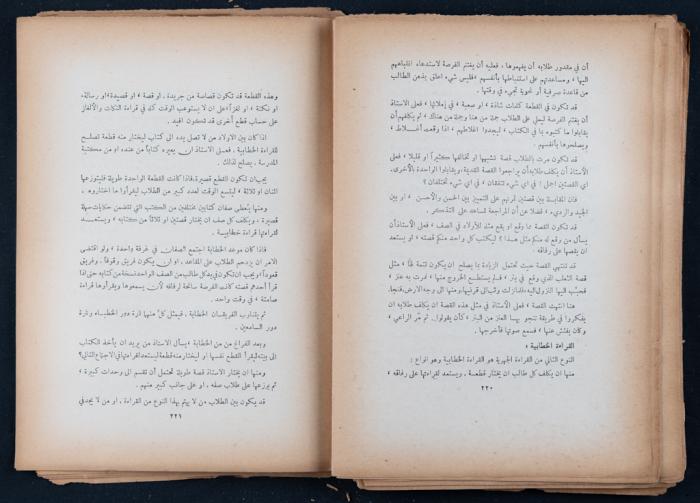 أن في مقدور طلابه أن يفهموها ، فعليه أن يغتنم الفرصة لاستدعاء انتباههم
اليها ، ومساعدتهم على استنباطها بأنفسهم ، فليس شيء اعلق بذهن الطالب
من قاعدة صرفية أو نحوية تجيء في وقتها .
قد تكون في القطعة كلمات شاذة ، او صعبة ، في إملائها ، فعلى الاستاذ
أن يغتنم الفرصة ليحل على الطلاب جملة من هنا وجملة من هناك ، ثم يكلفهم أن
يقابلوا ما كتبوه بما في الكتاب ، ليجدوا اغلاطهم ، اذا وقعت أغلاط ،
ويصلحوها بأنفسهم .
قد تكون مرت بالطلاب قصة تشبهها او تخالفها كثيراً او قليلا ، فعلى
الأستاذ أن يكلف طلابه أن يراجعوا القصة القديمة ، ويقابلوا الواحدة بالأخرى.
اي القصتين اجمل ؟ في اي شيء تتفقان ، في اي شيء تختلفان ؟
فان المقابلة بين قصتين تمرنهم على التمييز بين الحسن والأحسن ، او بين
الجيد والرديء ، فضلا عن أن المراجعة تساعد على التذكر .
قد تكون القصة مما وقع او يقع مثله للأولاد في الصف ، فعلى الاستاذ أن
يسأل من وقع له منكم مثل هذا ؟ ليكتب كل واحد منكم قصته ، او يستعد
ان يقصها على رفاقه .
قد تنتهي القصة حيث تحتمل الزيادة بما يصلح ان يكون تتمة لها ، مثل
قصة الثعلب الذي وقع في بئر ، فلم يستطع الخروج منها ، فمرت به عنز ،
فحبب اليها النزول اليه ، فلما نزلت وثب الى قرنيها ومنها الى وجه الارض ، فنجا .
هنا انتهت القصة ، فعلى الأستاذ في مثل هذه القصة ان يكلف طلابه ان
يفكروا في طريقة تنجو بها العنز من البئر ، كأن يقولوا : ثم مر الراعي ،
وكان يفتش عنها ، فسمع صوتها فأخرجها .
القراءة الخطابية :
النوع الثاني من القراءة الجهرية هو القراءة الخطابية وهو انواع :
منها ان يكلف كل طالب ان يختار قطعة ، ويستعد لقراءتها على رفاقه ،
٢٢٠
وهذه القطعة قد تكون قصاصة من جريدة ، او قصة ، او قصيدة ، او رسالة ،
او نكتة ، او لغزاً ، على ان لا يستوعب الوقت كله في قراءة النكات والألغاز
على حساب قطع أخرى قد تكون افيد .
اذا كان بين الاولاد من لا تصل يده الى كتاب ليختار منه قطعة تصلح
للقراءة الخطابية ، فعلى الاستاذ ان يعيره كتاباً من عنده او من مكتبة
المدرسة ، يصلح لذلك .
يجب ان تكون القطع قصيرة ، فاذا كانت القطعة الواحدة طويلة فليتوزعها
اثنان او ثلاثة ، ليتسع الوقت لعدد كبير من الطلاب ليقرأوا ما اختاروه .
ومنها يعطى صفان كتابين مختلفين من الكتب التي تتضمن حكايات سهلة
قصيرة ، ويكلف كل صف ان يختار قصتين او ثلاثاً من كتابه ، ويستعد
لقراءتها قراءة خطابية .
فاذا كان موعد الخطابة اجتمع الصفان في غرفة واحدة ، ولو اقتضى
الامر ان يزدحم الطلاب على المقاعد ، او ان يكون فريق وقوفاً ، وفريق
قعوداً ، ويجب ان تكون في يد كل طالب من الصف الواحد نسخة من كتابه حتى اذا
قرأ أحدهم قصته كانت الفرصة سانحة لرفاقه لأن يسمعوها ويقرأوها قراءة
صامتة ، في وقت واحد .
ثم يتناوب الفريقان الخطابة ، فيمثل كل منها تارة دور الخطباء وتارة
دور السامعين .
وبعد الفراغ من الخطابة ، يسأل الاستاذ من يريد ان يأخذ الكتاب
الى بيته ليقرأ القطع نفسها او ليختار منه قطعة ليستعد لقراءتها في الاجتماع التالي ؟
ومنها ان يختار الاستاذ قصة طويلة تحتمل أن تقسم الى وحدات كبيرة ،
ثم يوزعها على طلاب صفه ، او على جانب كبير منهم .
قد يكون بين الطلاب من لا يهتم بهذا النوع من القراءة ، او من لا يجد في
٢٢١